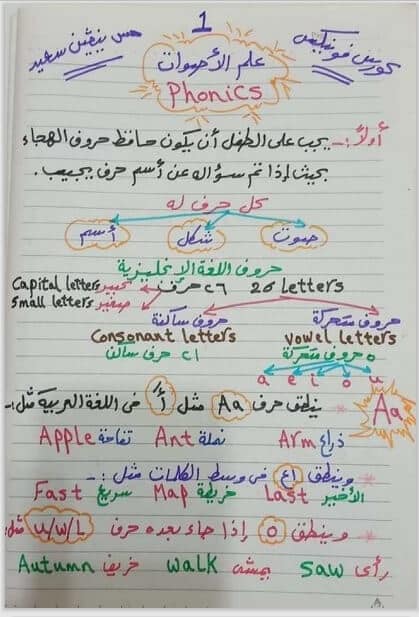 1
كورس فونيكس
مس نيفين سعيد
علم الأصوات
Phonics
أولاً :- يجب على الطفل أن يكون حافظ حروف الهجاء
بحيث إذا تم سؤاله عن أسم حرف يجيب .
كل حرف له
صوت شكل أسم
حروف اللغة الإنجليزية
26 letters ٢٦ حرف كبير Capital letters
صغير Small letters
حروف متحركة حروف ساكنة
vowel letters Consonant letters
٥ حروف متحركة ٢١ حرف ساكن
a e i o u
Aa ينطق حرف Aa مثل أ فى اللغة العربية مثل :-
ذراع Arm نملة Ant تفاحة Apple
وينطق فى وسط الكلمات مثل :-
الأخير Last خريطة Map سريع Fast
وينطق o إذا جاء بعده حرف u/w/L مثل:
رأى saw يمشى walk خريف Autumn